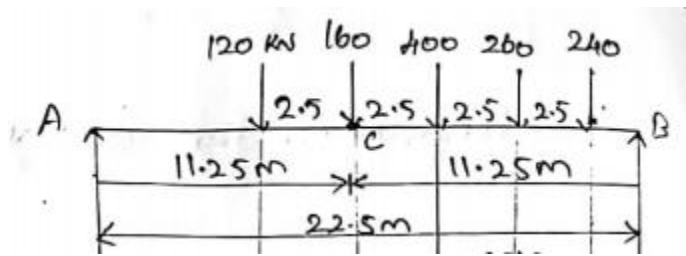 120 KN 160 400 260 240
A 2.5 2.5 2.5 2.5 B
C
11.25m 11.25m
22.5m